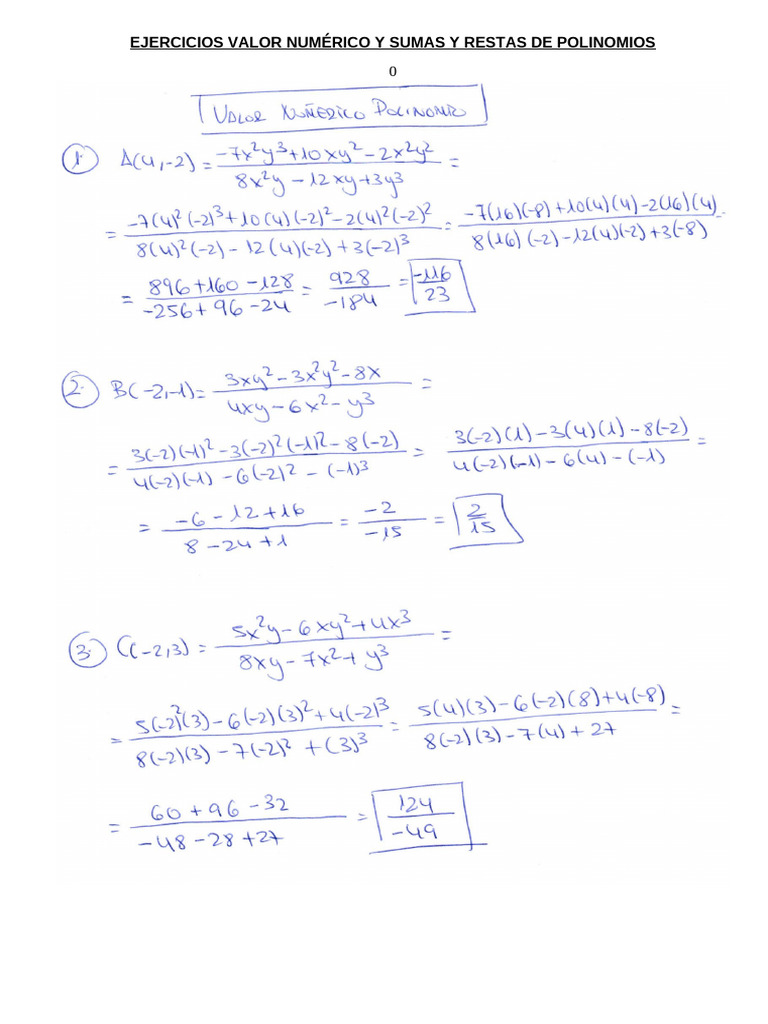 EJERCICIOS VALOR NUMÉRICO Y SUMAS Y RESTAS DE POLINOMIOS
0
VALOR NUÑERICO POLINOMIO
1. A(4,-2) = (-7x²y³+10xy²-2x²y²)/(8x²y-12xy+3y³) =
= (-7(4)²(-2)³+10(4)(-2)²-2(4)²(-2)²)/(8(4)²(-2)-12(4)(-2)+3(-2)³) = (-7(16)(-8)+10(4)(4)-2(16)(4))/(8(16)(-2)-12(4)(-2)+3(-8))
= (896+160-128)/(-256+96-24) = 928/-184 = -116/23
2. B(-2,-1) = (3xy²-3x²y²-8x)/(4xy-6x²-y³) =
= (3(-2)(-1)²-3(-2)²(-1)²-8(-2))/(4(-2)(-1)-6(-2)²-(-1)³) = (3(-2)(1)-3(4)(1)-8(-2))/(4(-2)(-1)-6(4)-(-1)) =
= (-6-12+16)/(8-24+1) = -2/-15 = 2/15
3. C(-2,3) = (5x²y-6xy²+4x³)/(8xy-7x²+y³) =
= (5(-2)²(3)-6(-2)(3)²+4(-2)³)/(8(-2)(3)-7(-2)²+(3)³) = (5(4)(3)-6(-2)(8)+4(-8))/(8(-2)(3)-7(4)+27) =
= (60+96-32)/(-48-28+27) = 124/-49